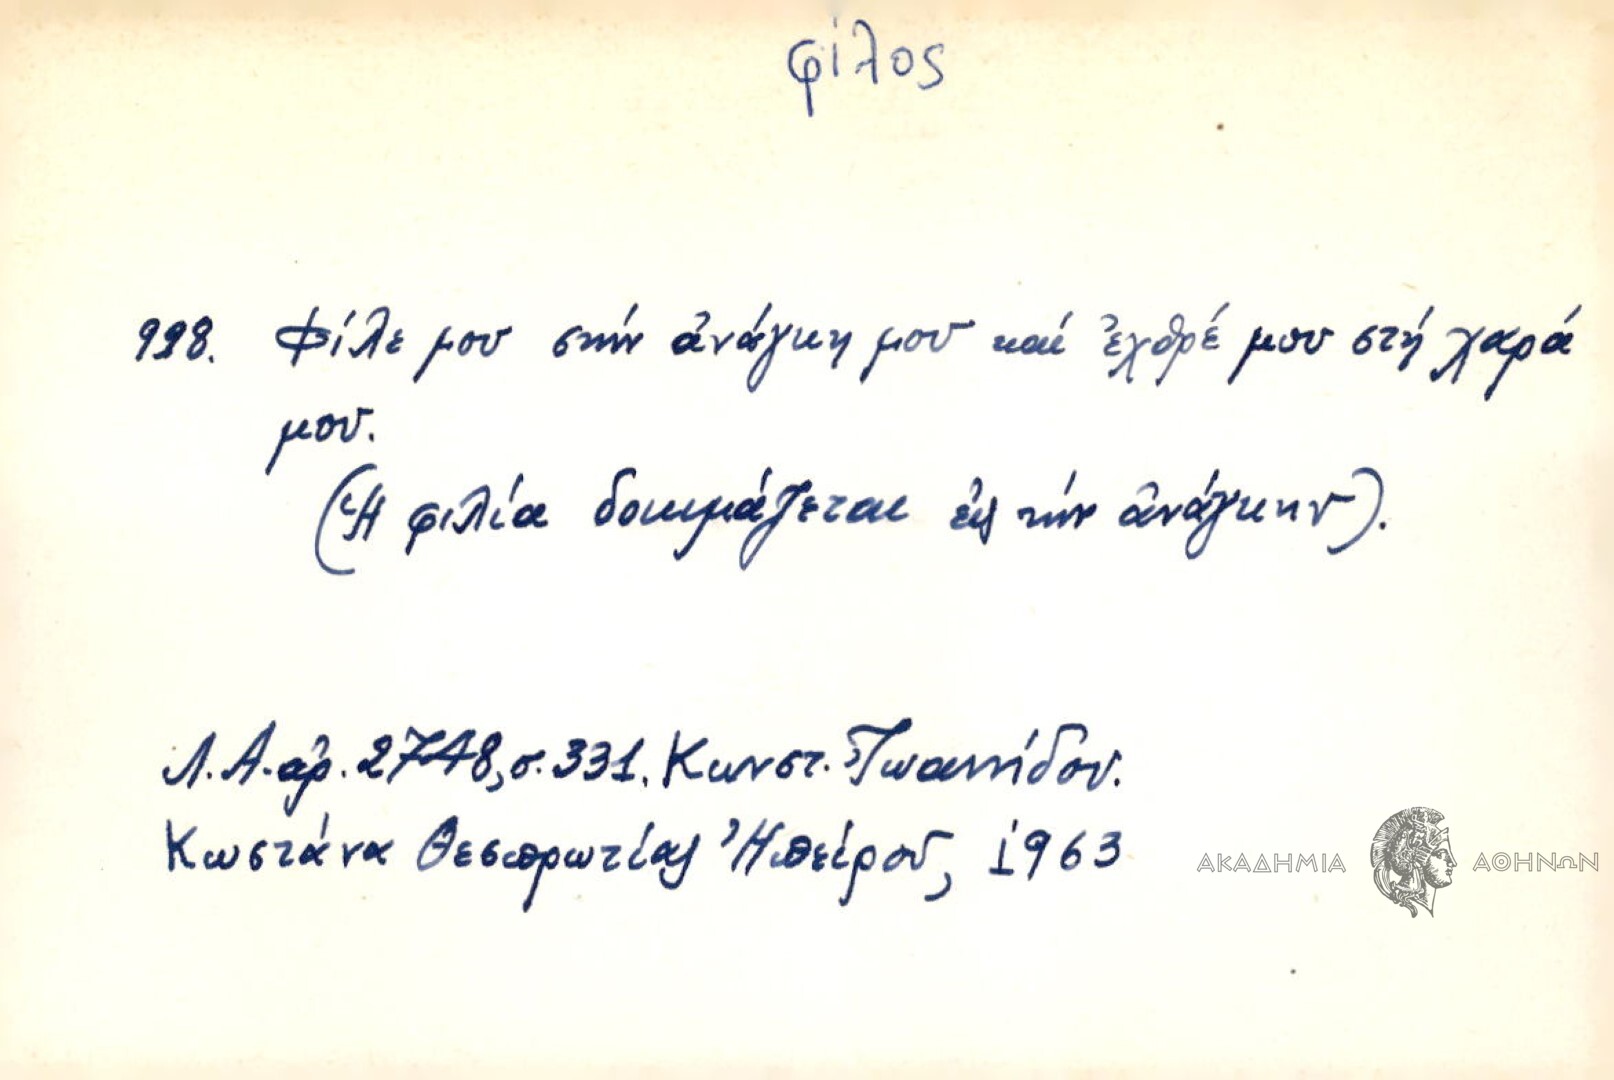 φίλος
998. Φίλε μου στήν ἀνάγκη μου καί ἐχθρέ μου στή χαρά
μου.
(Ἡ φιλία δοκιμάζεται εἰς τήν ἀνάγκην).
Λ.Α. ἀρ. 2748, σ. 331. Κωνστ. Ἰωαννίδου.
Κωστάνα Θεσπρωτίας Ἠπείρου, 1963
ΑΚΑΔΗΜΙΑ ΑΘΗΝΩΝ